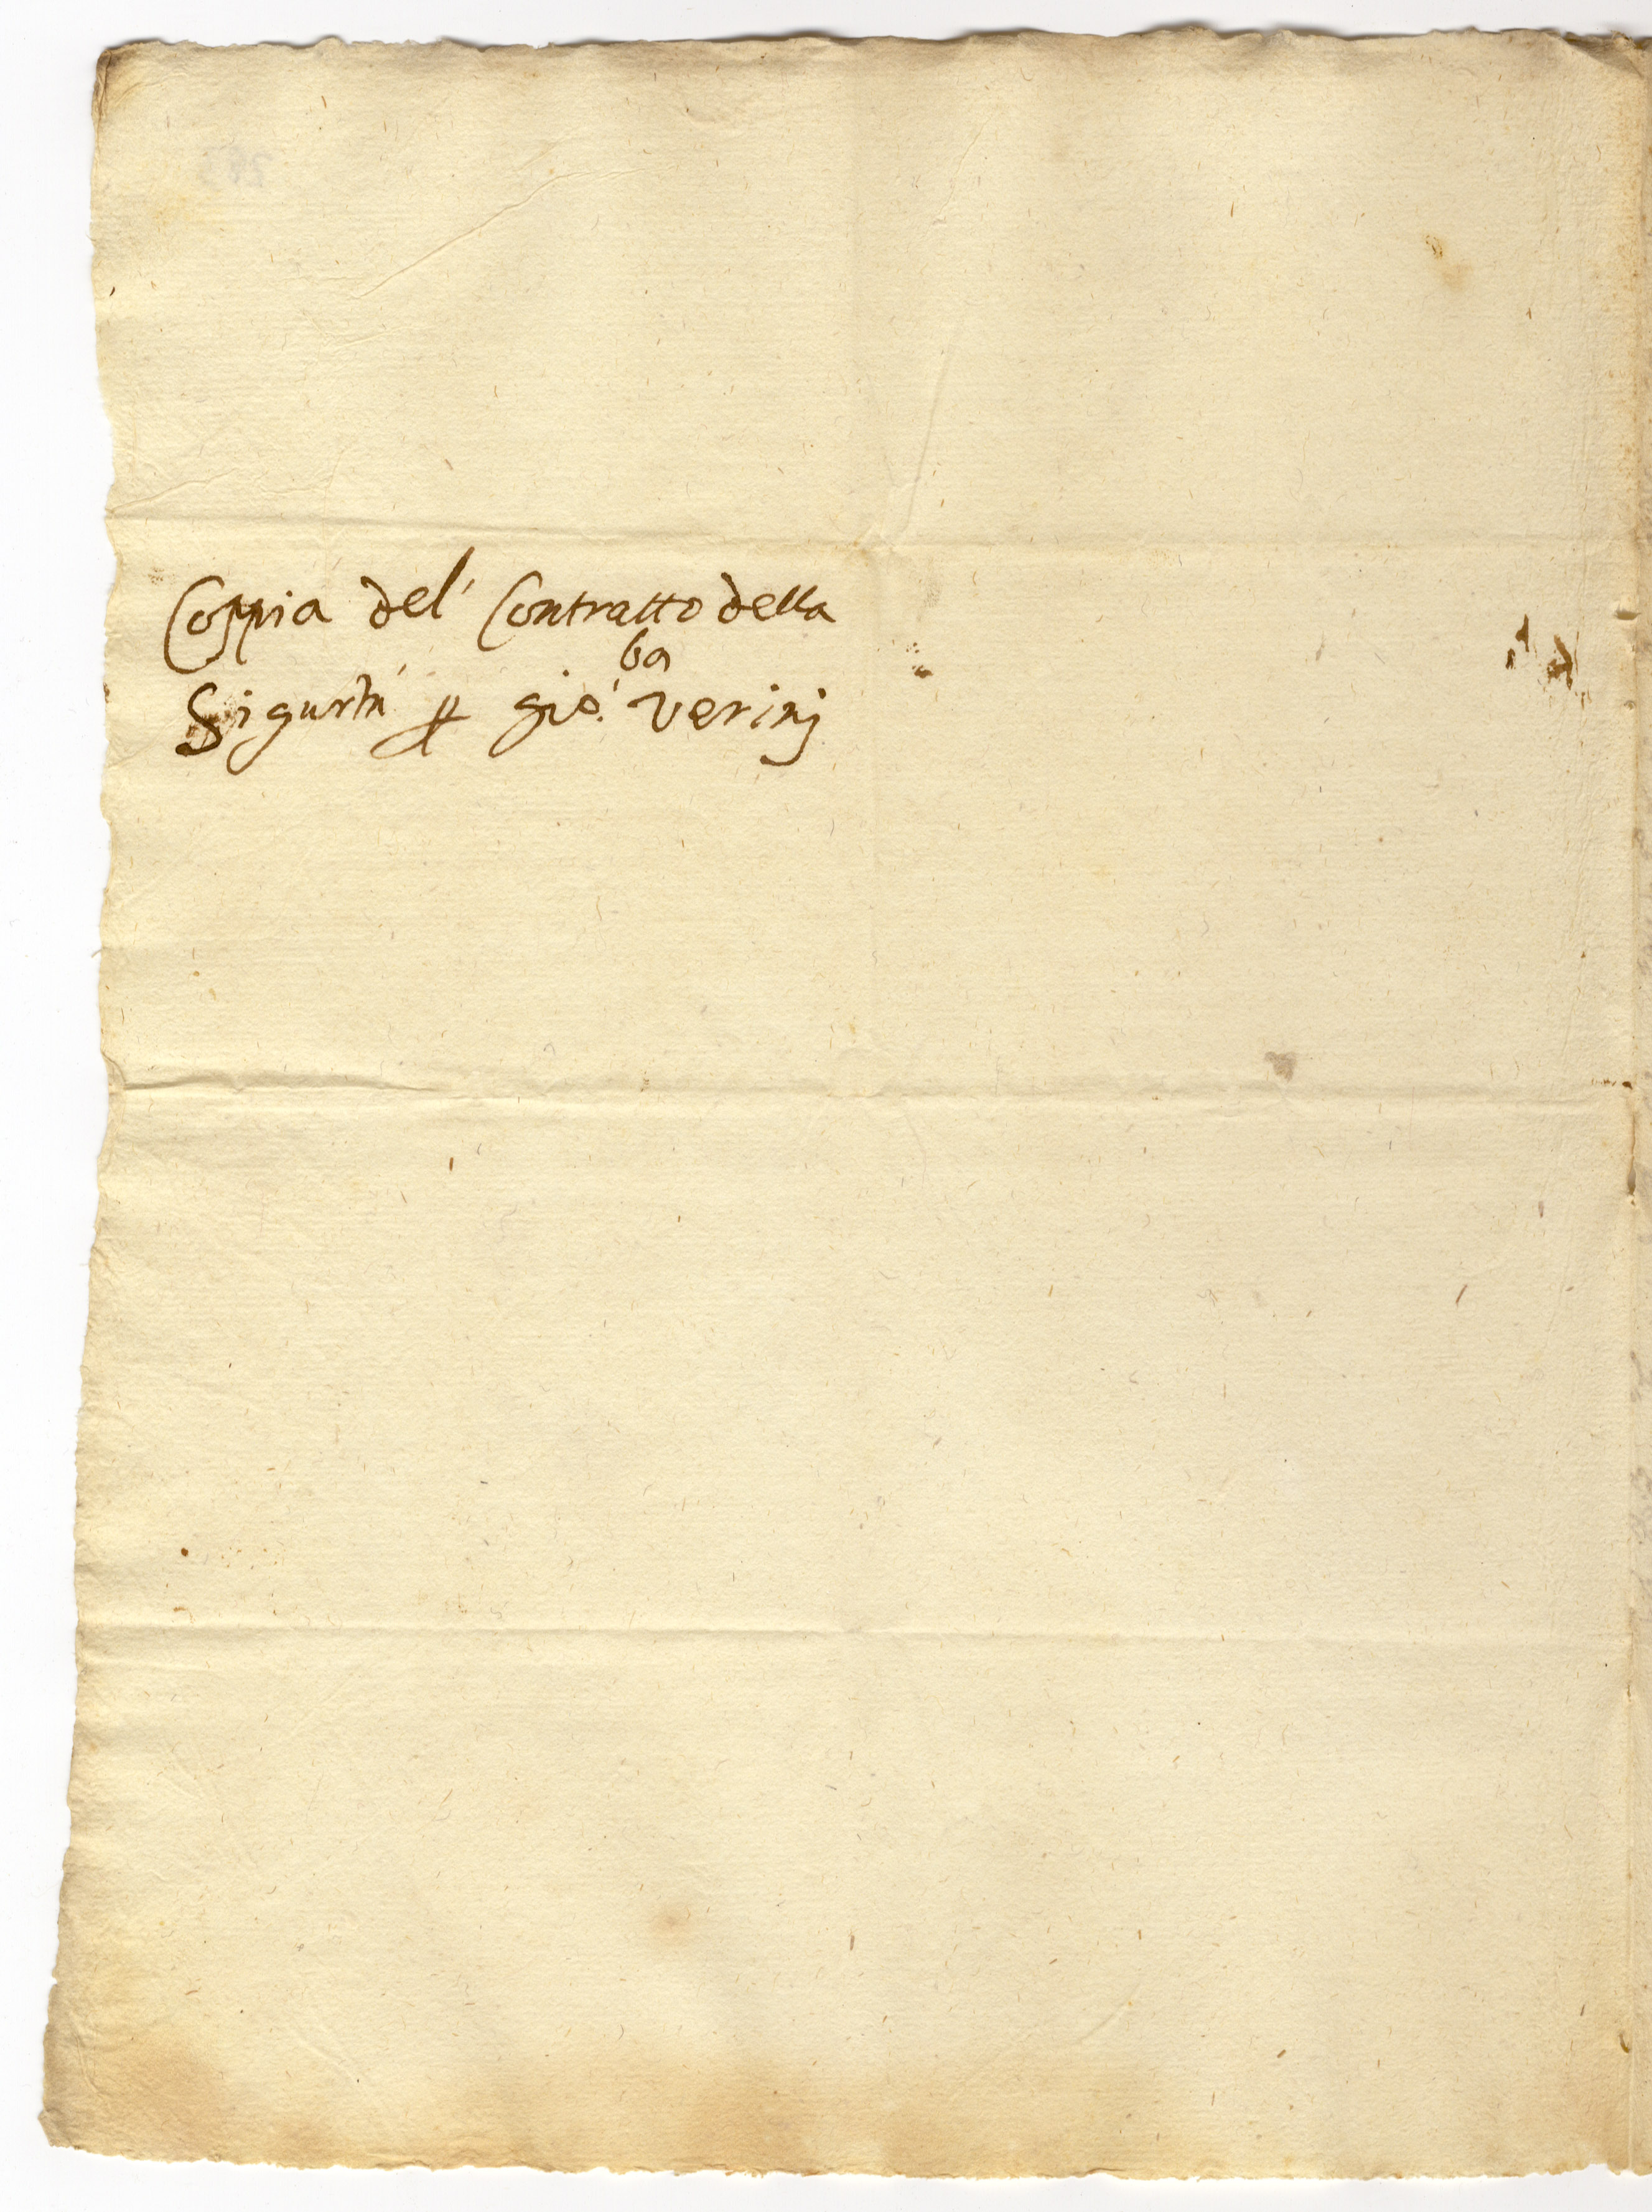 Coppia del' Contratto della
Sigurtà ꝑ Gio: ba Verinj